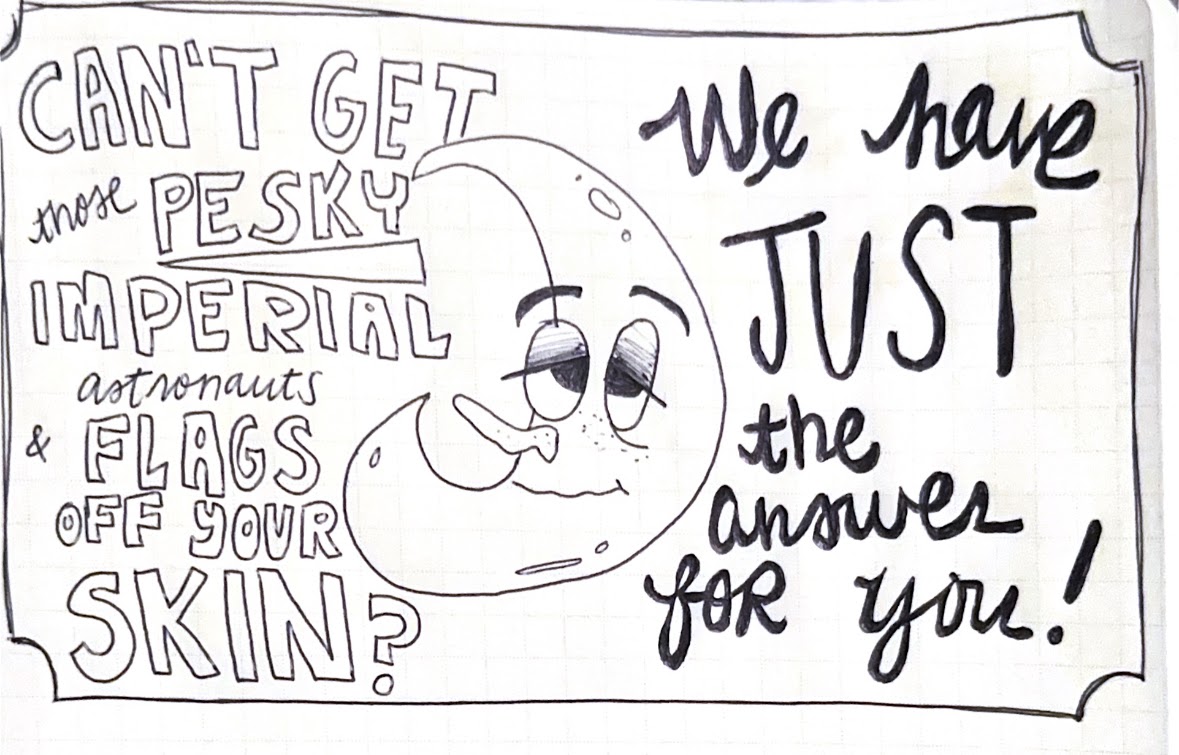 CAN'T GET
those PESKY
IMPERIAL
astronauts
& FLAGS
OFF YOUR
SKIN?
We have
JUST
the
answer
foR you!